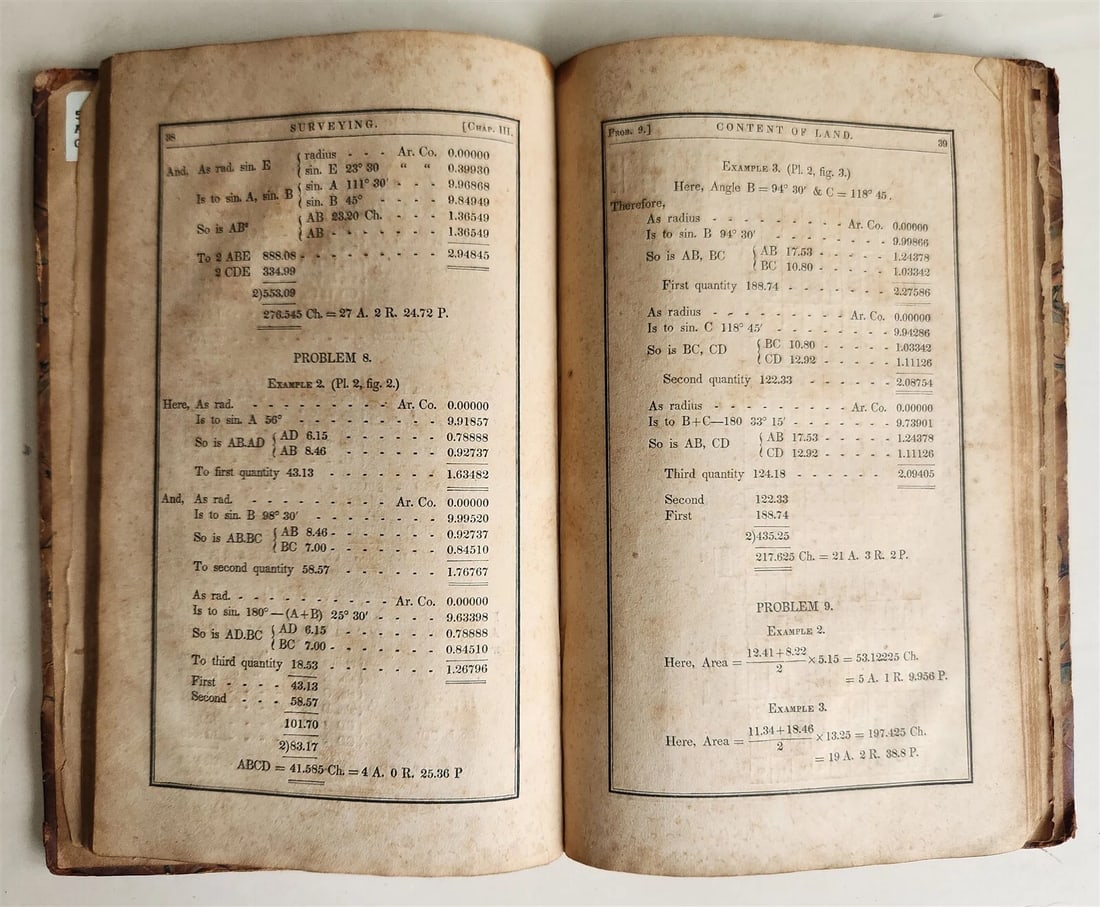 38 SURVEYING. [CHAP. III.
And, As rad. sin. E { radius - - - Ar. Co. 0.00000
sin. E 23° 30 “ “ 0.39930
Is to sin. A, sin. B { sin. A 111° 30′ - - - 9.96868
sin. B 45° - - - - 9.84949
So is AB² { AB 23.20 Ch. - - - - 1.36549
AB - - - - - - - 1.36549
To 2 ABE 888.08 - - - - - - - 2.94845
2 CDE 334.99
2)553.09
276.545 Ch. = 27 A. 2 R. 24.72 P.
PROBLEM 8.
EXAMPLE 2. (Pl. 2, fig. 2.)
Here, As rad. - - - - - - - - - Ar. Co. 0.00000
Is to sin. A 56° - - - - - - - - 9.91857
So is AB.AD { AD 6.15 - - - - - - 0.78888
AB 8.46 - - - - - - 0.92737
To first quantity 43.13 - - - - - - 1.63482
And, As rad. - - - - - - - - - Ar. Co. 0.00000
Is to sin. B 98° 30′ - - - - - - - 9.99520
So is AB.BC { AB 8.46 - - - - - - - 0.92737
BC 7.00 - - - - - - - 0.84510
To second quantity 58.57 - - - - - - 1.76767
As rad. - - - - - - - - - Ar. Co. 0.00000
Is to sin. 180° — (A+B) 25° 30′ - - - - 9.63398
So is AD.BC { AD 6.15 - - - - - - 0.78888
BC 7.00 - - - - - - - 0.84510
To third quantity 18.53 - - - - - - 1.26796
First - - - - 43.13
Second - - - 58.57
101.70
2)83.17
ABCD = 41.585 Ch. = 4 A. 0 R. 25.36 P
PROB. 9.] CONTENT OF LAND. 39
EXAMPLE 3. (Pl. 2, fig. 3.)
Here, Angle B = 94° 30′ & C = 118° 45,
Therefore,
As radius - - - - - - - - - Ar. Co. 0.00000
Is to sin. B 94° 30′ - - - - - - - 9.99866
So is AB, BC { AB 17.53 - - - - - 1.24378
BC 10.80 - - - - - 1.03342
First quantity 188.74 - - - - - - - 2.27586
As radius - - - - - - - - - Ar. Co. 0.00000
Is to sin. C 118° 45′ - - - - - - - - 9.94286
So is BC, CD { BC 10.80 - - - - - 1.03342
CD 12.92 - - - - - 1.11126
Second quantity 122.33 - - - - - - 2.08754
As radius - - - - - - - - - Ar. Co. 0.00000
Is to B+C—180 33° 15′ - - - - - - - 9.73901
So is AB, CD { AB 17.53 - - - - - 1.24378
CD 12.92 - - - - - 1.11126
Third quantity 124.18 - - - - - - - 2.09405
Second 122.33
First 188.74
2)435.25
217.625 Ch. = 21 A. 3 R. 2 P.
PROBLEM 9.
EXAMPLE 2.
Here, Area = 12.41+8.22/2 × 5.15 = 53.12225 Ch.
= 5 A. 1 R. 9.956 P.
EXAMPLE 3.
Here, Area = 11.34+18.46/2 × 13.25 = 197.425 Ch.
= 19 A. 2 R. 38.8 P.